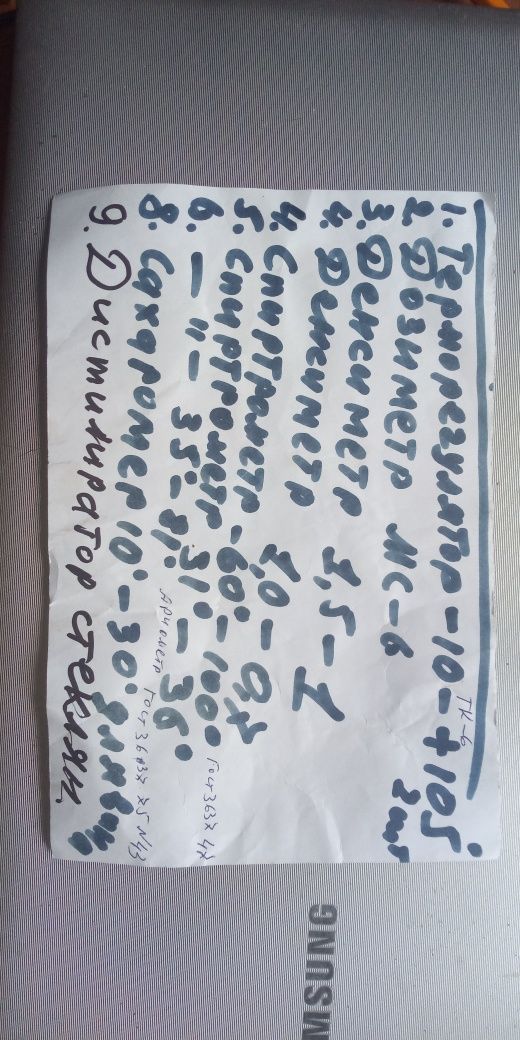 1. Терморегулятор -10-+105°
ТК-6
2. Дозиметр ИС-6 2шт
3. Денсиметр 1,5-1
4. Денсиметр 1,0-0,7
4. Спиртраметр -60°-100°
ГОСТ 3637 47
5. Спиртрометр 31°-36°
6. -"- 35°-81°
Ареометр ГОСТ 36637 75 N43
8. Сахаромер 10°-30°
9. Дистилиратор стеклян.
SAMSUNG